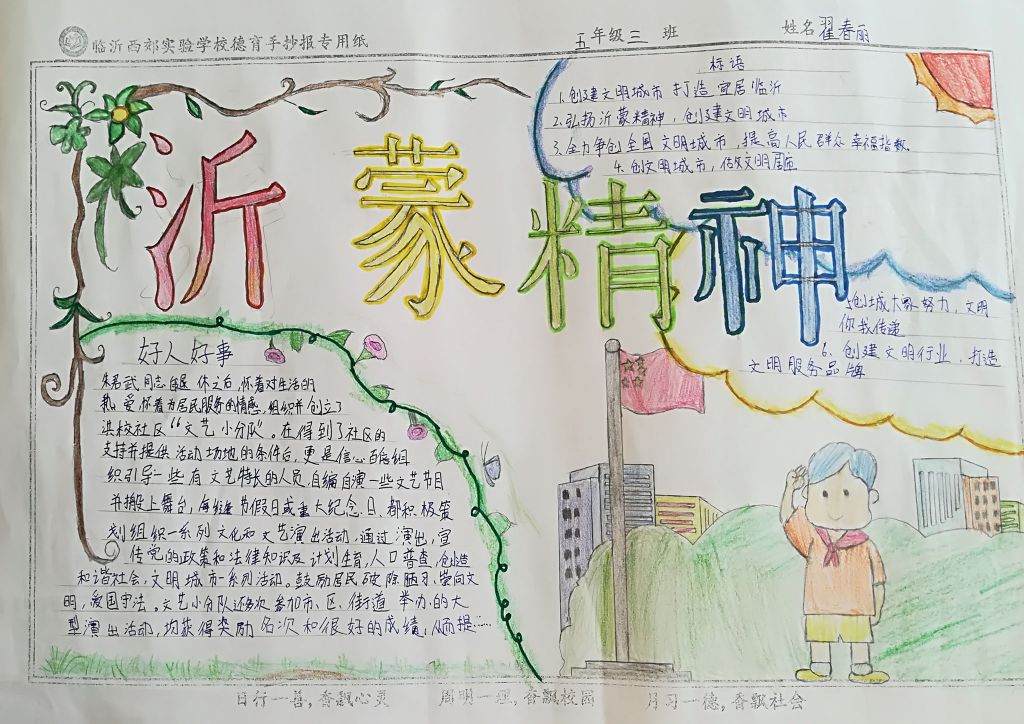 临沂西郊实验学校德育手抄报专用纸
五年级三班
姓名 翟春丽
标语
1.创建文明城市 打造宜居临沂
2.弘扬沂蒙精神，创建文明城市
3.全力争创全国文明城市，提高人民群众幸福指数.
4.创文明城市，做文明居
沂蒙精神
5创城大家努力，文明
你我传递
6、创建文明行业，打造
文明服务品牌
好人好事
朱君武同志 休之后，怀着对生活的
热爱，怀着为居民服务的情感，组织并创立了
洪校社区“文艺小分队”。在得到了社区的
支持并提供活动场地的条件后，更是信心百倍组
织引导一些有文艺特长的人员，自编自演一些文艺节目
并搬上舞台，每 节假日或重大纪念日、都积极策
划组织一系列文化和文艺演出活动，通过演出，宣
传党的政策和法律知识及计划生育，人口普查，创造
和谐社会，文明城市一系列活动。鼓励居民破除陋习、崇向文
明，爱国守法。文艺小分队还多次参加市、区、街道举办的大
型演出活动，均获得奖励名次和很好的成绩，从而提……
日行一善，香飘心灵 周明一理，香飘校园 月习一德，香飘社会